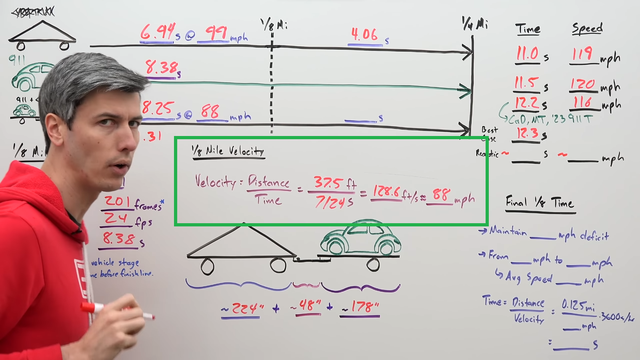 CYBERTRUCK
6.94 s @ 99 mph
1/8 Mi
4.06 s
1/4 Mi
911
8.38 s
911 +
8.25 s @ 88 mph
___ s
.31
1/8 M
Time
Speed
11.0 s
119 mph
11.5 s
120 mph
12.2 s
116 mph
C&D, MT, '23 911 T
Best Case
12.3 s
Realistic ~ ___ s ~ ___ mph
1/8 Mile Velocity
Velocity = Distance / Time = 37.5 ft / 7/24 s = 128.6 ft/s ≈ 88 mph
201 frames*
24 fps
8.38 s
vehicle stage
me before finish line.
~224" + ~48" + ~178"
Final 1/8 Time
→ Maintain ___ mph deficit
→ From ___ mph to ___ mph
↳ Avg Speed ___ mph
Time = Distance / Velocity = 0.125 mi / ___ mph · 3600 s/hr
= ___ s